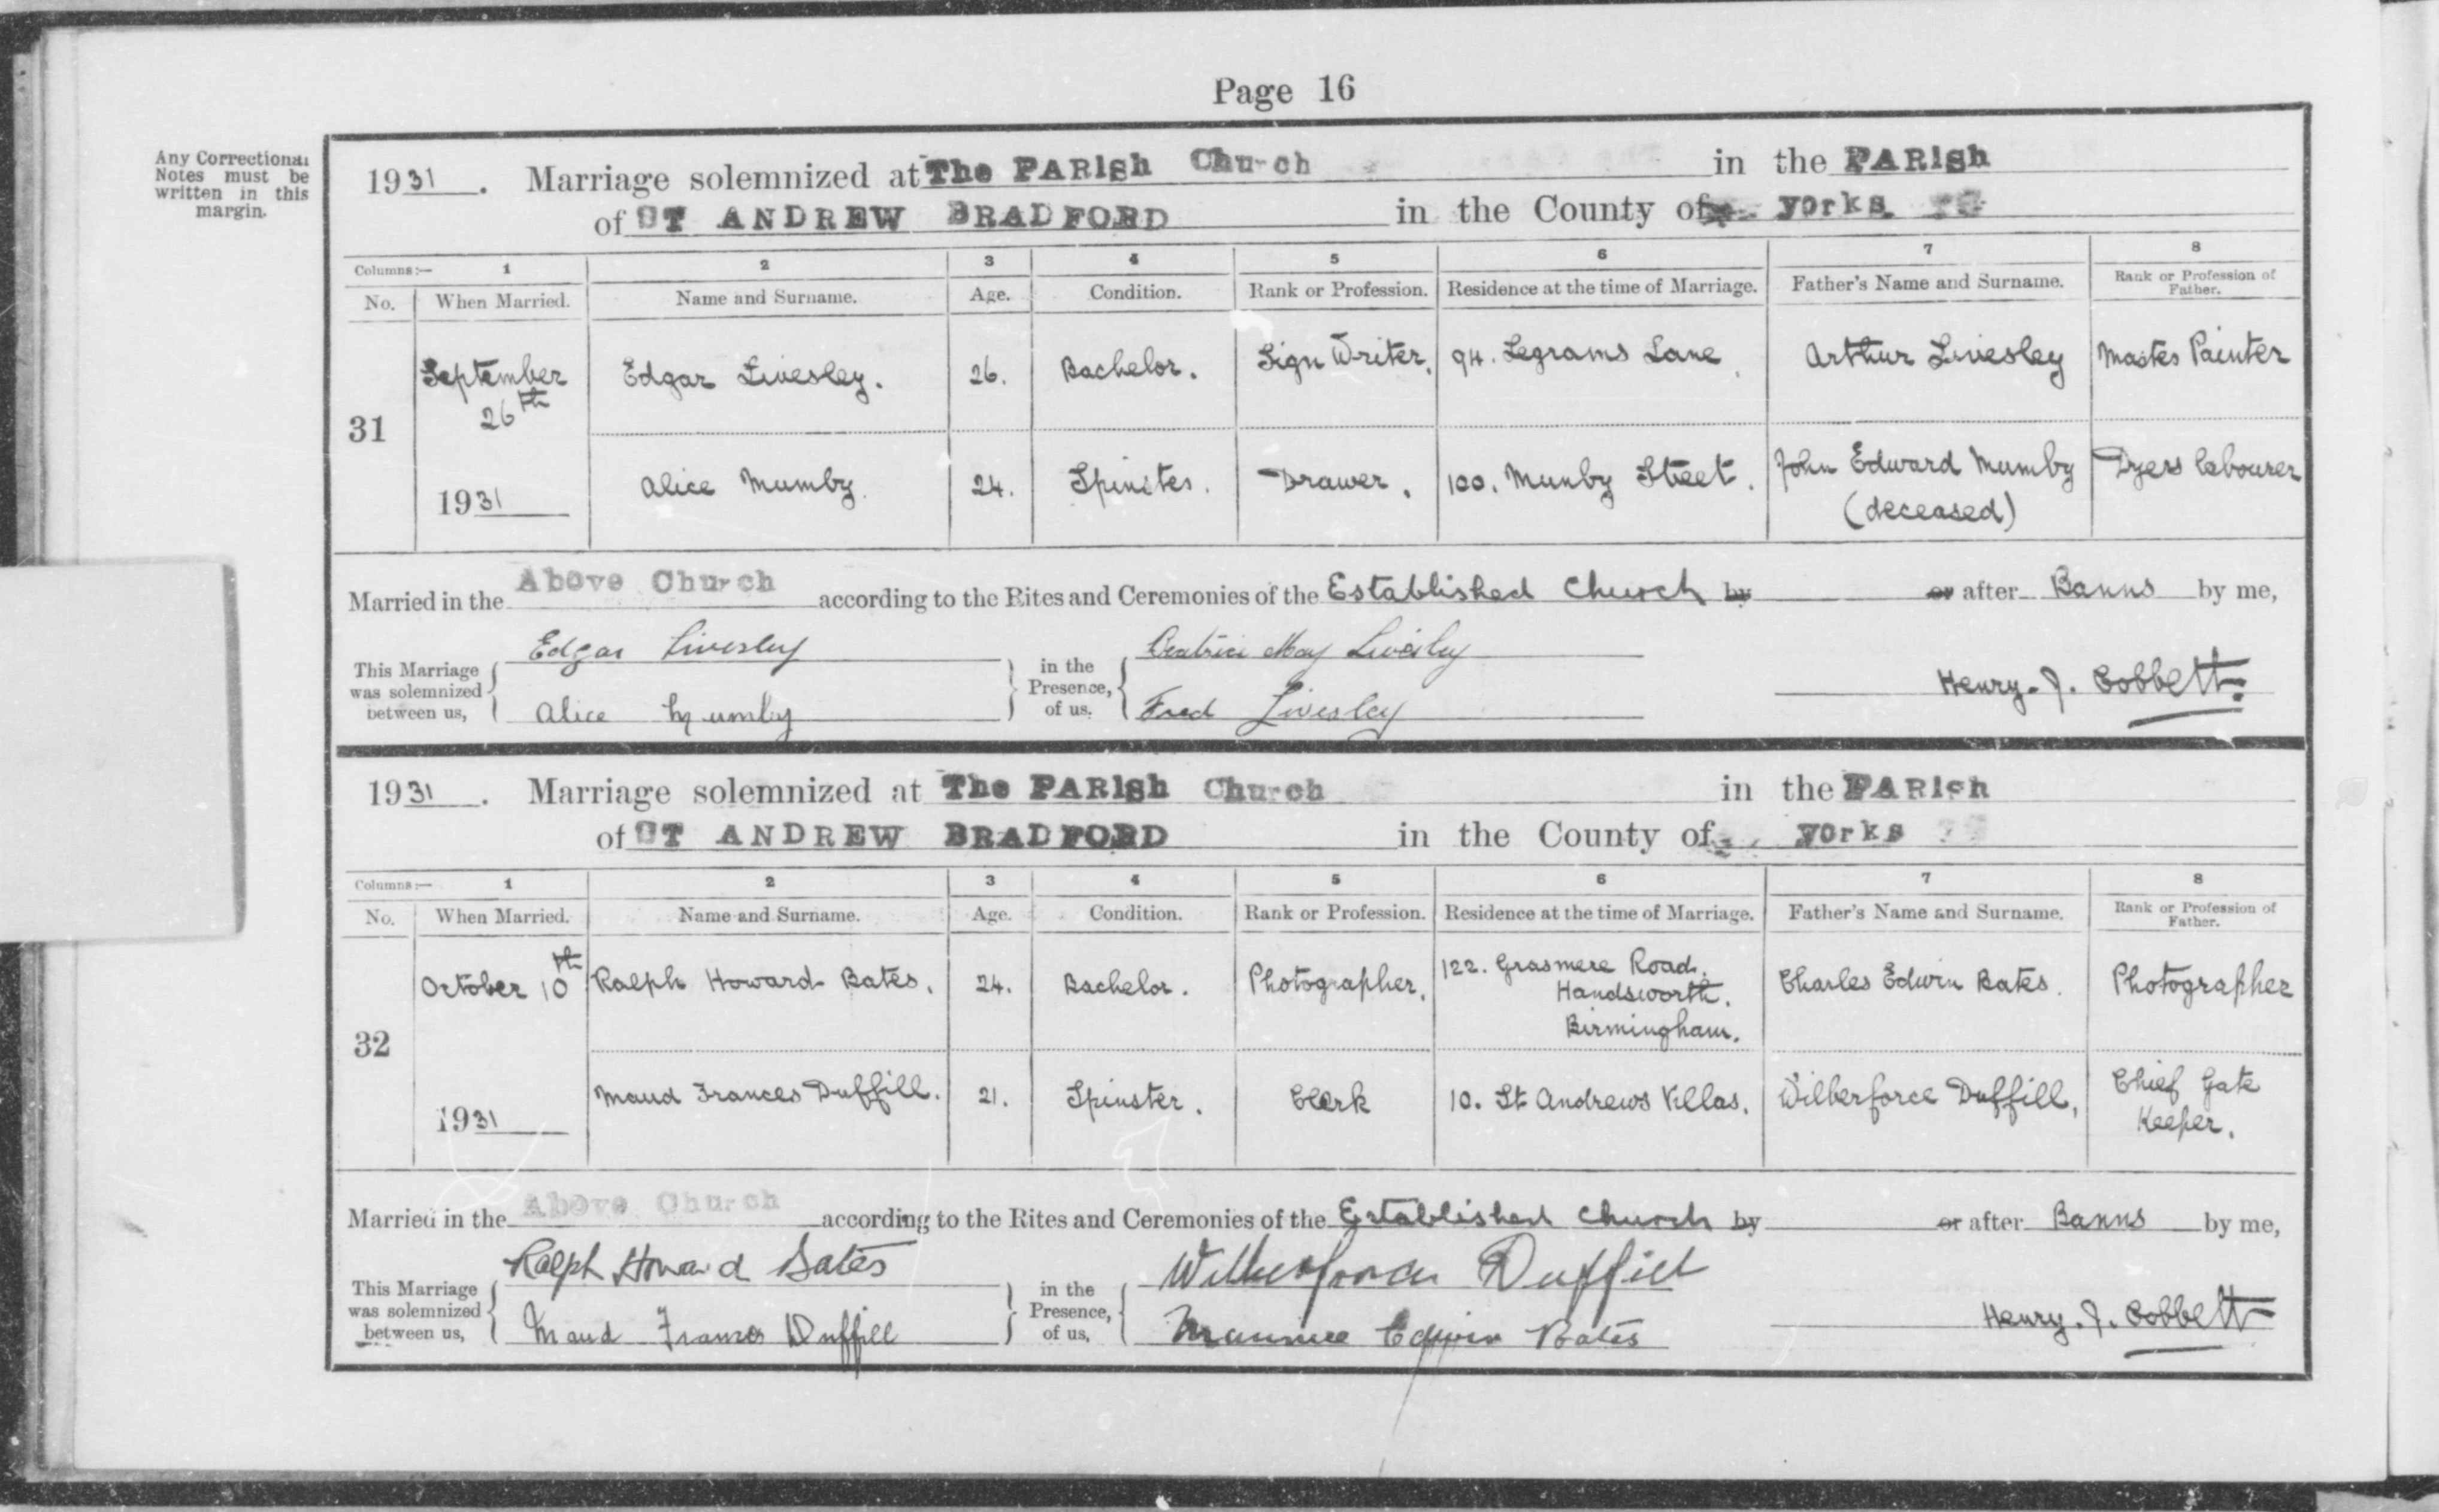 Page 16
Any Correctional
Notes must be
written in this
margin.
1931. Marriage solemnized at The PARish Church in the PARish
of ST ANDREW BRADFORD in the County of yorks
Columns:— 1 2 3 4 5 6 7 8
No. When Married. Name and Surname. Age. Condition. Rank or Profession. Residence at the time of Marriage. Father's Name and Surname. Rank or Profession of Father.
31 September 26th 1931
Edgar Livesley. 26. Bachelor. Sign Writer. 94. Legrams Lane Arthur Livesley Master Painter
Alice Mumby. 24. Spinster. Drawer. 100. Munby Street. John Edward Mumby (deceased) Dyers labourer
Married in the Above Church according to the Rites and Ceremonies of the Established Church by or after Banns by me,
This Marriage was solemnized between us, Edgar Livesley Alice Mumby in the Presence, of us, Beatrice May Livesley Fred Livesley Henry. J. Cobbett.
1931. Marriage solemnized at The PARish Church in the PARish
of ST ANDREW BRADFORD in the County of yorks
Columns:— 1 2 3 4 5 6 7 8
No. When Married. Name and Surname. Age. Condition. Rank or Profession. Residence at the time of Marriage. Father's Name and Surname. Rank or Profession of Father.
32 October 10th 1931
Ralph Howard Bates. 24. Bachelor. Photographer. 122. Grasmere Road. Handsworth. Birmingham. Charles Edwin Bates. Photographer
Maud Frances Duffill. 21. Spinster. Clerk 10. St Andrews Villas. Wilberforce Duffill. Chief Gate Keeper.
Married in the Above Church according to the Rites and Ceremonies of the Established Church by or after Banns by me,
This Marriage was solemnized between us, Ralph Howard Bates Maud Frances Duffill in the Presence, of us, Wilberforce Duffill Maurice Edwin Bates Henry. J. Cobbett